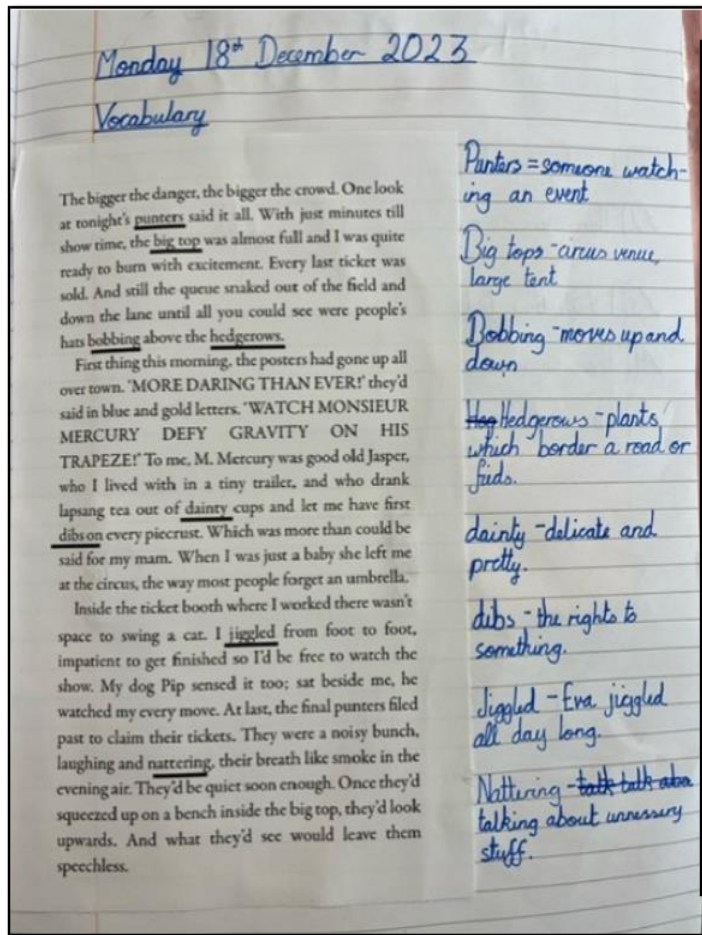 Monday 18th December 2023
Vocabulary
The bigger the danger, the bigger the crowd. One look
at tonight's punters said it all. With just minutes till
show time, the big top was almost full and I was quite
ready to burn with excitement. Every last ticket was
sold. And still the queue snaked out of the field and
down the lane until all you could see were people's
hats bobbing above the hedgerows.
First thing this morning, the posters had gone up all
over town. 'MORE DARING THAN EVER!' they'd
said in blue and gold letters. 'WATCH MONSIEUR
MERCURY DEFY GRAVITY ON HIS
TRAPEZE!' To me, M. Mercury was good old Jasper,
who I lived with in a tiny trailer, and who drank
lapsang tea out of dainty cups and let me have first
dibs on every piecrust. Which was more than could be
said for my mam. When I was just a baby she left me
at the circus, the way most people forget an umbrella.
Inside the ticket booth where I worked there wasn't
space to swing a cat. I jiggled from foot to foot,
impatient to get finished so I'd be free to watch the
show. My dog Pip sensed it too; sat beside me, he
watched my every move. At last, the final punters filed
past to claim their tickets. They were a noisy bunch,
laughing and nattering, their breath like smoke in the
evening air. They'd be quiet soon enough. Once they'd
squeezed up on a bench inside the big top, they'd look
upwards. And what they'd see would leave them
speechless.
Punters = someone watch-
ing an event
Big tops - circus venue,
large tent
Bobbing - moves up and
down
Hedgerows - plants
which border a road or
fieds.
dainty - delicate and
pretty.
dibs - the rights to
something.
Jiggled - Eva jiggled
all day long.
Nattering - talk talk abo
talking about unnessery
stuff.